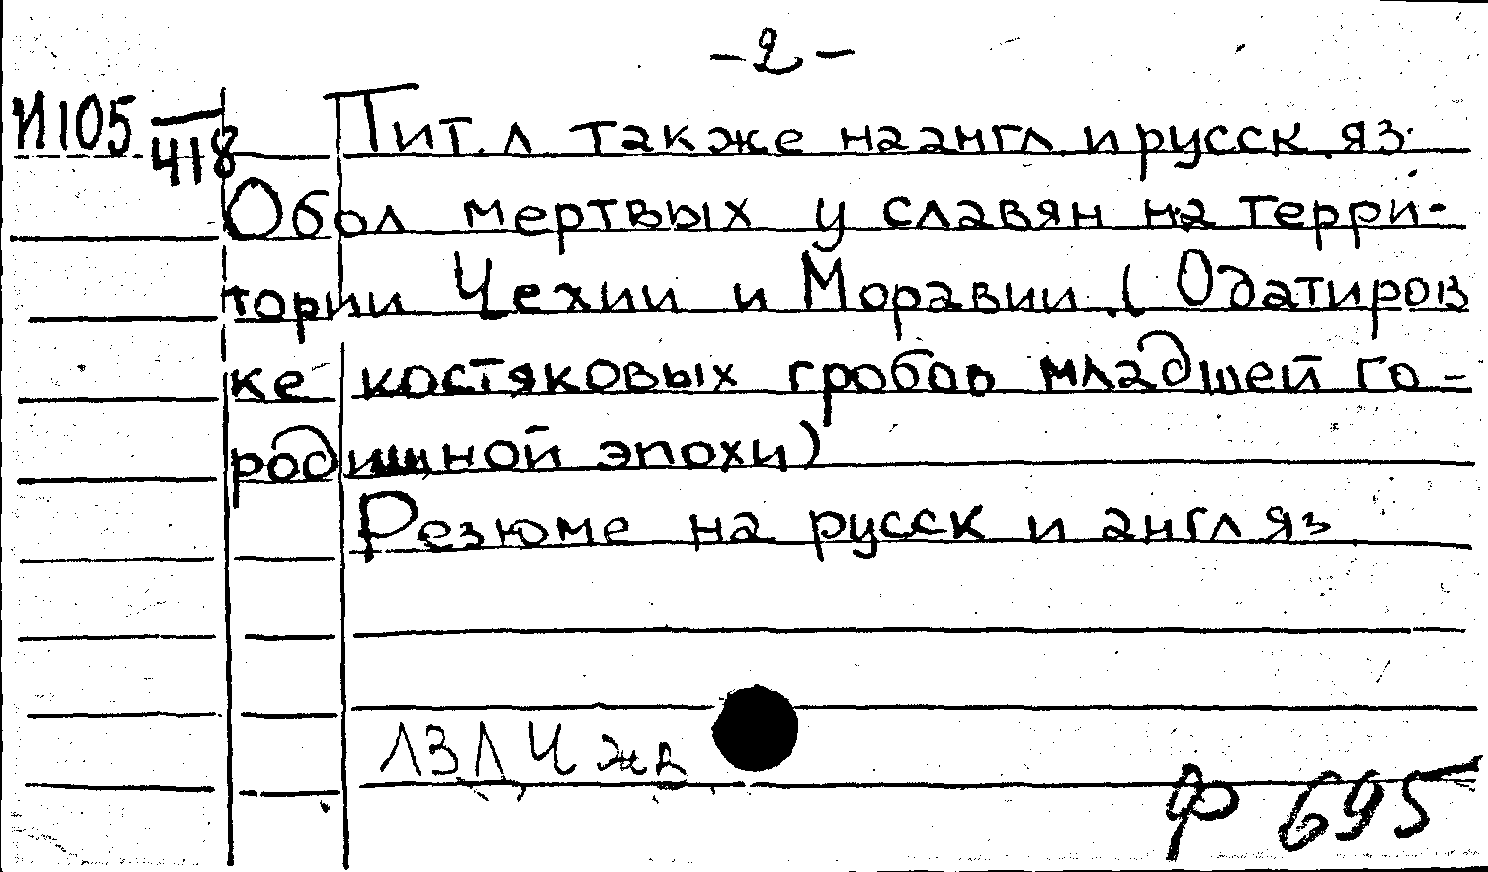 -2-
И105
418
Тит. л также на англ и русск яз.
Обол мертвых у славян на терри-
тории Чехии и Моравии. (О датиров
ке костяковых гробов младшей го-
родищной эпохи)
Резюме на русск и англ яз
ЛЗЛ Ч жв
Ф 695